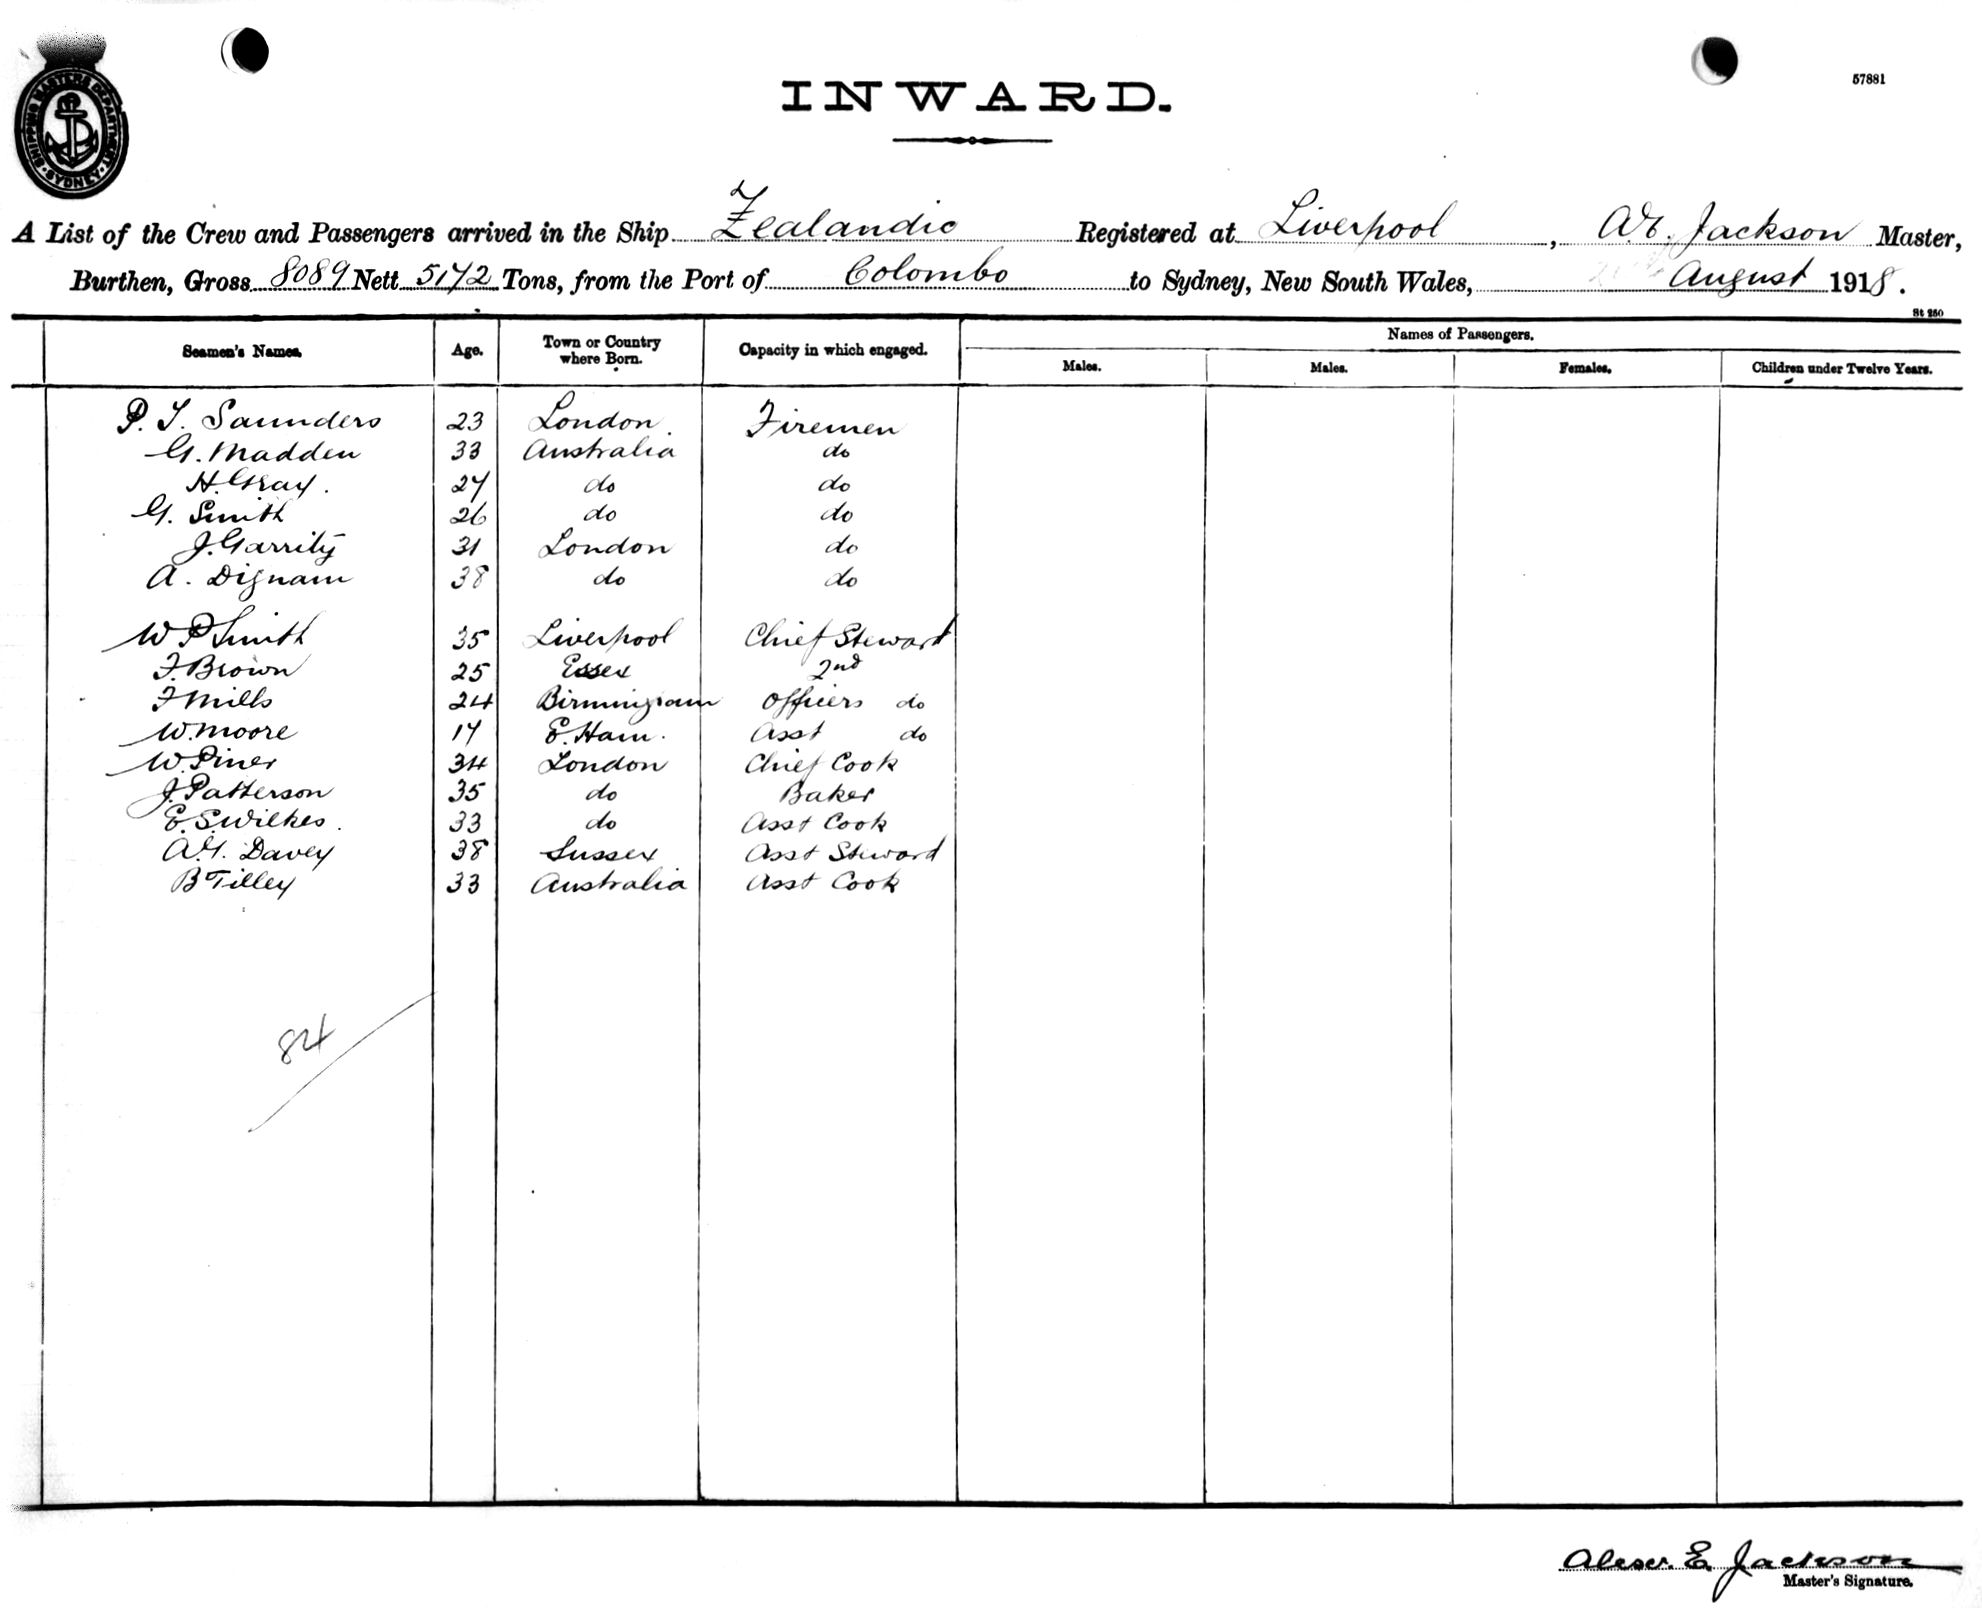 SHIPPING MASTERS DEPARTMENT
SYDNEY
57881
INWARD.
A List of the Crew and Passengers arrived in the Ship Zealandic Registered at Liverpool, A.E. Jackson Master,
Burthen, Gross 8089 Nett 5172 Tons, from the Port of Colombo to Sydney, New South Wales, August 1918.
St 250
Seamen's Names. Age. Town or Country where Born. Capacity in which engaged. Names of Passengers.
Males. Males. Females. Children under Twelve Years.
P. T. Saunders 23 London Firemen
G. Madden 33 Australia do
H. Gray. 27 do do
G. Smith 26 do do
J. Garrity 31 London do
A. Dignam 38 do do
W P Smith 35 Liverpool Chief Steward
F. Brown 25 Essex 2nd
F Mills 24 Birmingham Officers do
W. Moore 17 E. Ham. Asst do
W. Piner 34 London Chief Cook
J. Patterson 35 do Baker
E. S. Wilkes. 33 do Asst Cook
A.G. Davey 38 Sussex Asst Steward
B Tilley 33 Australia Asst Cook
84
Alexr. E. Jackson
Master's Signature.